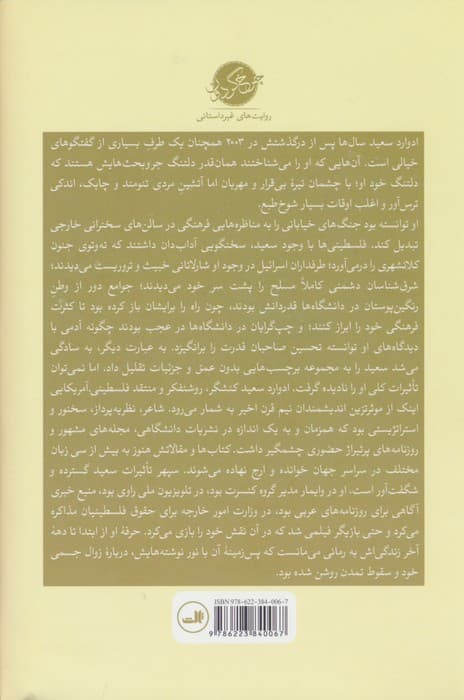 روایت‌های غیرداستانی
ادوارد سعید سال‌ها پس از درگذشتش در ۲۰۰۳ همچنان یک طرفِ بسیاری از گفتگوهای
خیالی است. آن‌هایی که او را می‌شناختند همان‌قدر دلتنگ جروبحث‌هایش هستند که
دلتنگ خود او؛ با چشمان تیرهٔ بی‌قرار و مهربان اما آتشین مردی تنومند و چابک، اندکی
ترس‌آور و اغلب اوقات بسیار شوخ‌طبع.
او توانسته بود جنگ‌های خیابانی را به مناظره‌هایی فرهنگی در سالن‌های سخنرانی خارجی
تبدیل کند. فلسطینی‌ها با وجود سعید، سخنگویی آداب‌دان داشتند که ته‌وتوی جنون
کلانشهری را درمی‌آورد؛ طرفداران اسرائیل در وجود او شارلاتانی خبیث و تروریست می‌دیدند؛
شرق‌شناسان دشمنی کاملاً مسلح را پشت سر خود می‌دیدند؛ جوامع دور از وطنِ
رنگین‌پوستان در دانشگاه‌ها قدردانش بودند، چون راه را برایشان باز کرده بود تا کثرت
فرهنگی خود را ابراز کنند؛ و چپ‌گرایان در دانشگاه‌ها در عجب بودند چگونه آدمی با
دیدگاه‌های او توانسته تحسین صاحبان قدرت را برانگیزد. به عبارت دیگر، به سادگی
می‌شد سعید را به مجموعه برچسب‌هایی بدون عمق و جزئیات تقلیل داد. اما نمی‌توان
تأثیرات کلی او را نادیده گرفت. ادوارد سعید کنشگر، روشنفکر و منتقد فلسطینی‌ـ‌آمریکایی
اینک از موثرترین اندیشمندان نیم قرن اخیر به شمار می‌رود. شاعر، نظریه‌پرداز، سخنور و
استراتژیستی بود که همزمان و به یک اندازه در نشریات دانشگاهی، مجله‌های مشهور و
روزنامه‌های پرتیراژ حضوری چشمگیر داشت. کتاب‌ها و مقالاتش هنوز به بیش از سی زبان
مختلف در سراسر جهان خوانده و ارج نهاده می‌شوند. سپهر تأثیرات سعید گسترده و
شگفت‌آور است. او در وایمار مدیر گروه کنسرت بود، در تلویزیون ملی راوی بود، منبع خبری
آگاهی برای روزنامه‌های عربی بود، در وزارت امور خارجه برای حقوق فلسطینیان مذاکره
می‌کرد و حتی بازیگر فیلمی شد که در آن نقش خود را بازی می‌کرد. حرفهٔ او از ابتدا تا دههٔ
آخر زندگی‌اش به رمانی می‌مانست که پس‌زمینهٔ آن با نور نوشته‌هایش، دربارهٔ زوال جسمی
خود و سقوط تمدن روشن شده بود.
ISBN 978-622-384-006-7
ثالث
9 786223 840067